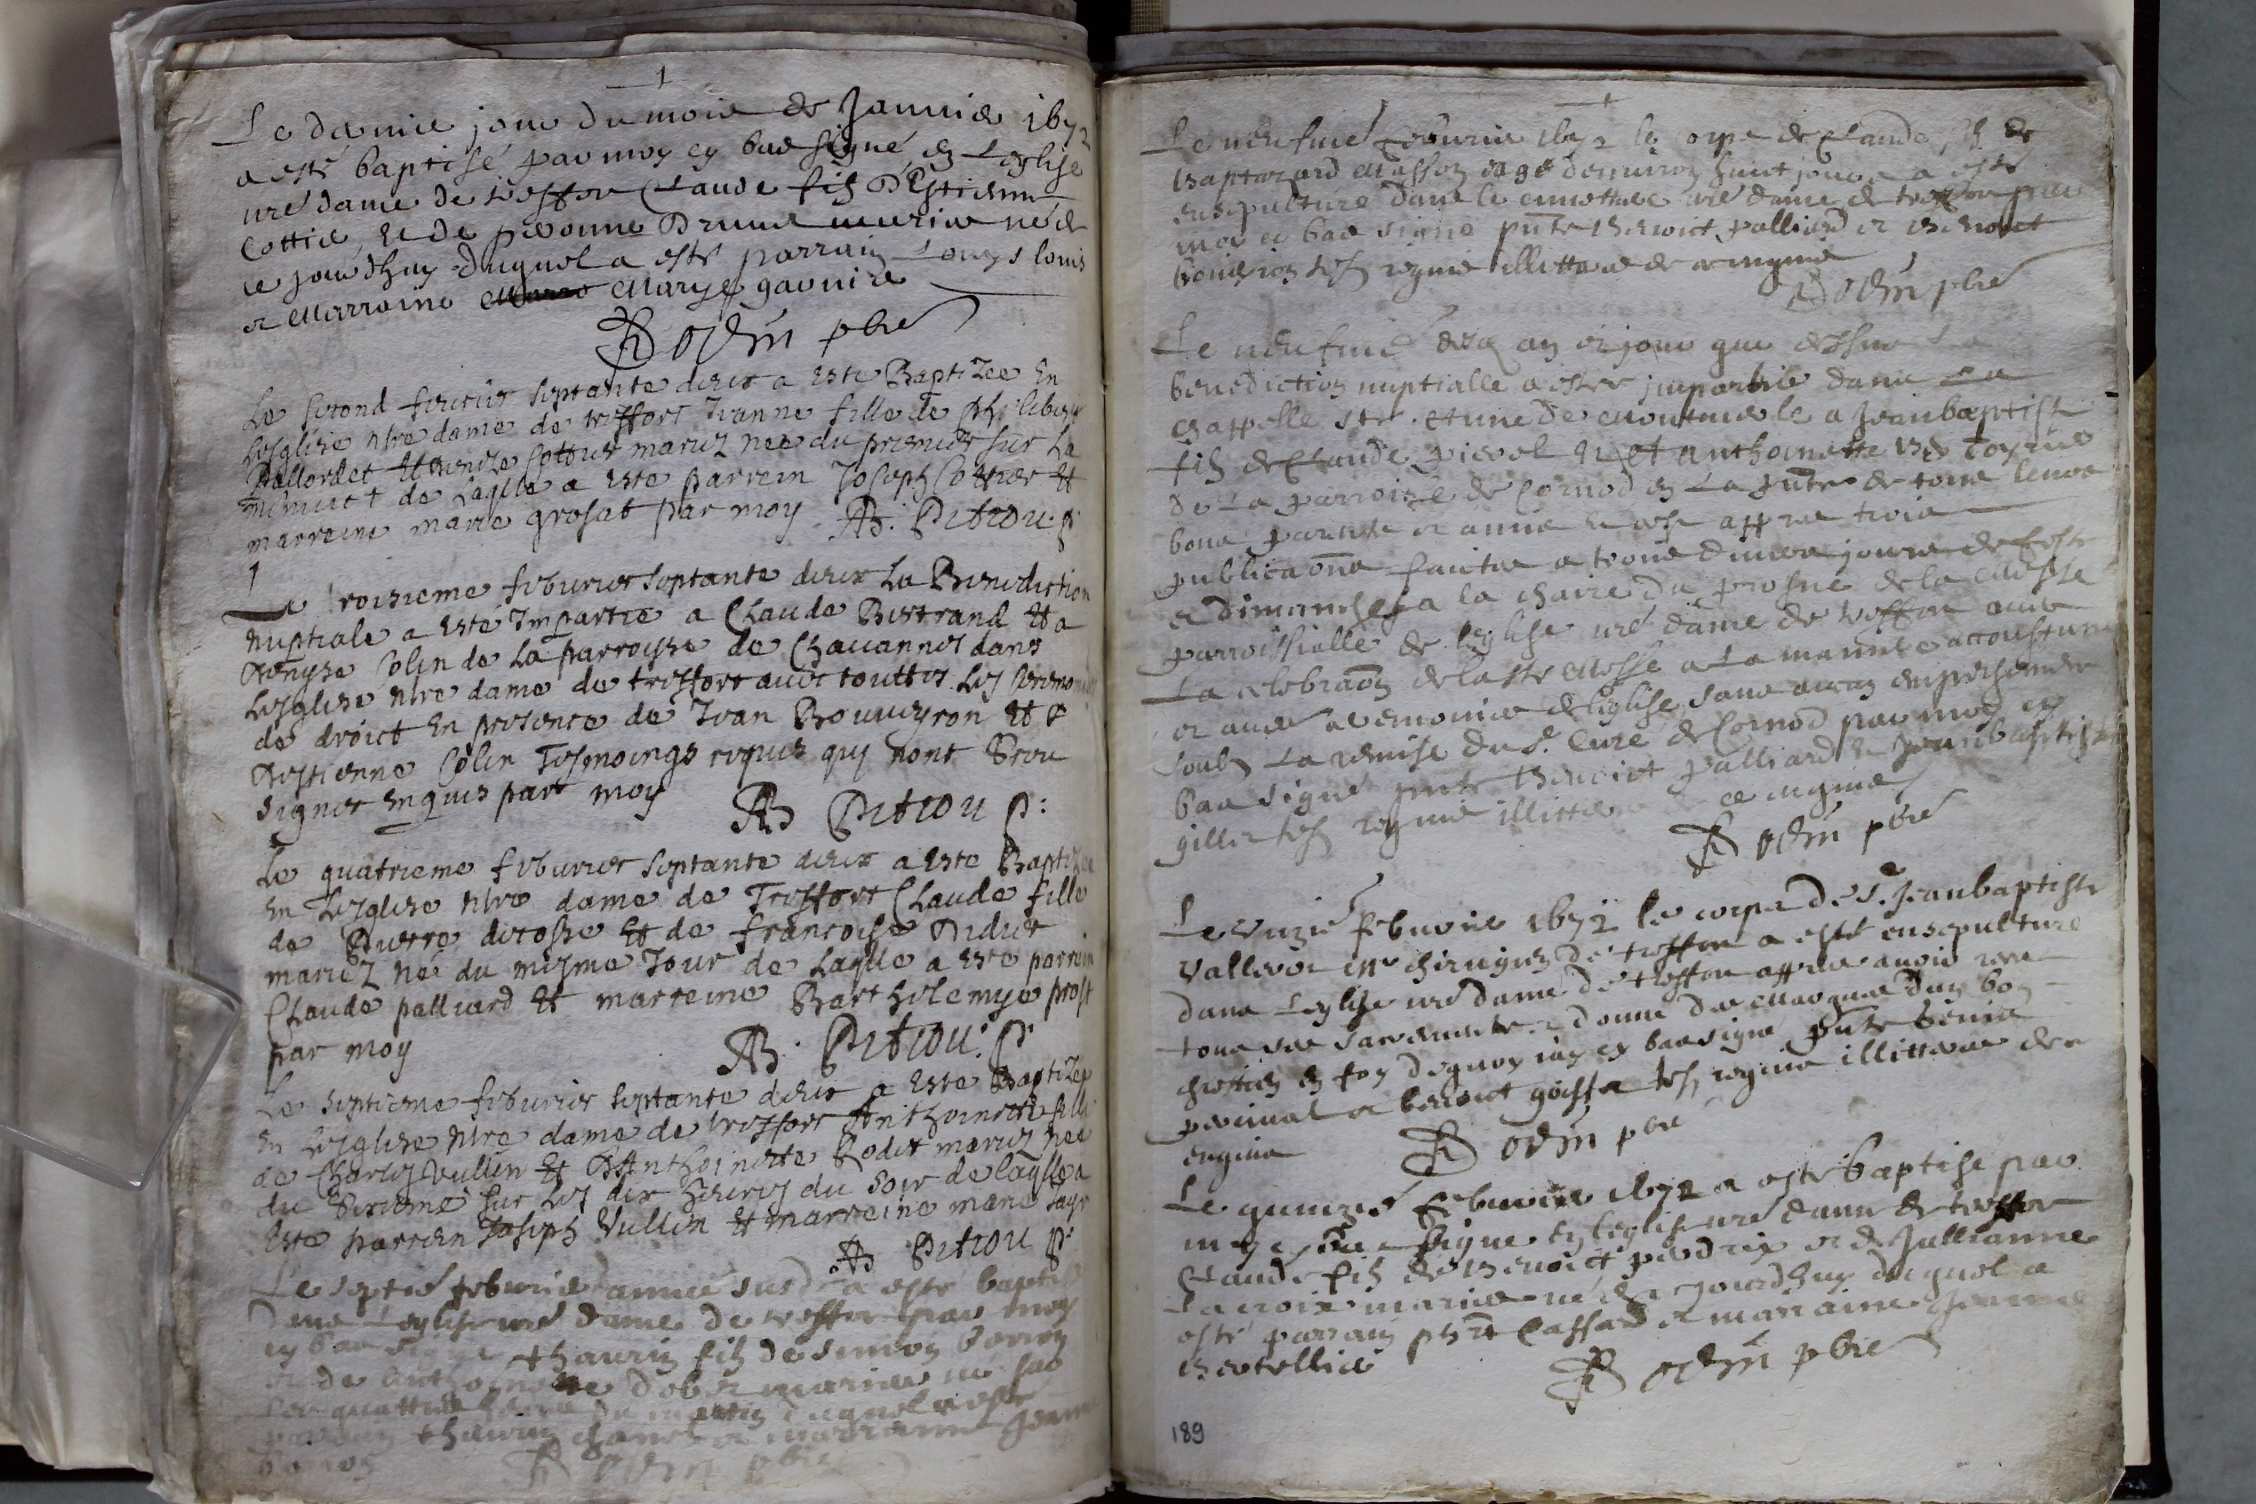 Le dernier jour du mois de Janvier 1672
a esté baptisé par moy en bas signé en Leglise
nre dame de treffor Claude filz Destienne
Cottier et de pernonne Drune mariez né de
ce jourdhuy duquel a esté parrain Louys louis
et Marraine Marye garnier
Rodem pbre
Le second feurier septante deux a este Baptizee En
Lesglise ntre dame de treffort Jeanne fille de philibert
Pallordet Et denize Cottier mariez nee du premier sur La
minuict de Laqlle a este parrein Joseph Cottier Et
marreine marie grosat par moy AB. Pitiou. p.
1
Le troisieme feburier septante deux La Benediction
Nuptiale a esté Impartie a Claude Bertrand Et a
Denyse Colin de La parroisse de Chavannes dans
Lesglize ntre dame de treffort avec touttes Les ceremonies
de droict En presence de Jean Bouveyron Et d
Estienne Colin Tesmoings requis quy nont Sceu
signer Enquis part moy AB Pitiou p:
Le quatrieme feburier septante deux a este Baptizee
En Lesglize ntre dame de Treffort Claude fille
de Pierre decosse Et de francoise Didier
mariez Née du mesme Jour de Laqlle a este parrein
Claude palliard Et marreine Bartholemye prost
par moy AB. Pitiou. p.
Le septieme feburier septante deux a este Baptizee
En Lesglize ntre dame de treffort Anthoinette fille
de Charles Vullin Et DAnthoinette Rodet mariez nee
du Sixieme sur Les dix heures du Soir de laqlle a
este parrien Joseph Vullin Et marreine marie
AB Pitiou p.
Le septie feburier annee susd a esté baptisé
Dans Leglise nre dame de treffor par moy
en bas signé thaurin filz de Simon borron
et de anthoinette mariez né sur
Les quattre heures du matin duquel a esté
parrain thaurin et marraine Jeanne
Rodem pbre
Le neufvie febvrier 1672 le corps de Claude filz de
Baptazard Masson eagé denviron huict jours a esté
ensepulturé dans le cimettiere nre dame de treffor par
moy en bas signé pnte Benoict palliard et Benoict
tesm requis illitteres de ce enquis
Rodem pbre
Le neufvie desd an et jour que dessus La
benediction nuptialle a estee impartie dans La
chappelle ste. Anne de a Jeanbaptiste
filz de Claude et Anthoinette
de La parroisse de Cornod en La pnce de tous leurs
bons parents et amis et ce appres trois
publicaons faictes a trois divers jours de feste
et dimanches a la chaire du prosne de la Messe
parroissialle de leglise nre dame de treffor avec
La celebraon de la ste Messe a La maniere accoustumee
et avec ceremonies deglise sans aucun empeschement
soubz La remise du Sr. Curé de Cornod par moy en
bas signé pnte Benoict palliard et Jeanbaptiste
gillet tesm requis illitteres ce enquis
Rodem pbre
Le unzie febvrier 1672 le corps de Sr. Jeanbaptiste
Vallevot Me chirugien de treffor a esté ensepulturé
dans Leglise nre dame de treffor appres avoir receu
tous ses sacrements et donné des marques dun bon
chrestien en foy dequoy iay en bas signé pnte Denis
percival et benoict goiffon tesm requis illitteres de ce
enquis Rodem pbre
Le quinzie Febvrier 1672 a esté baptisé par
moy en bas signé en leglise nre dame de treffor
Claude filz de Benoict perdrix et de Jullianne
Lacroix mariez né de ce jourdhuy duquel a
esté parrain phrt Cassard et marraine Jeanne
chatellier Rodem pbre
189